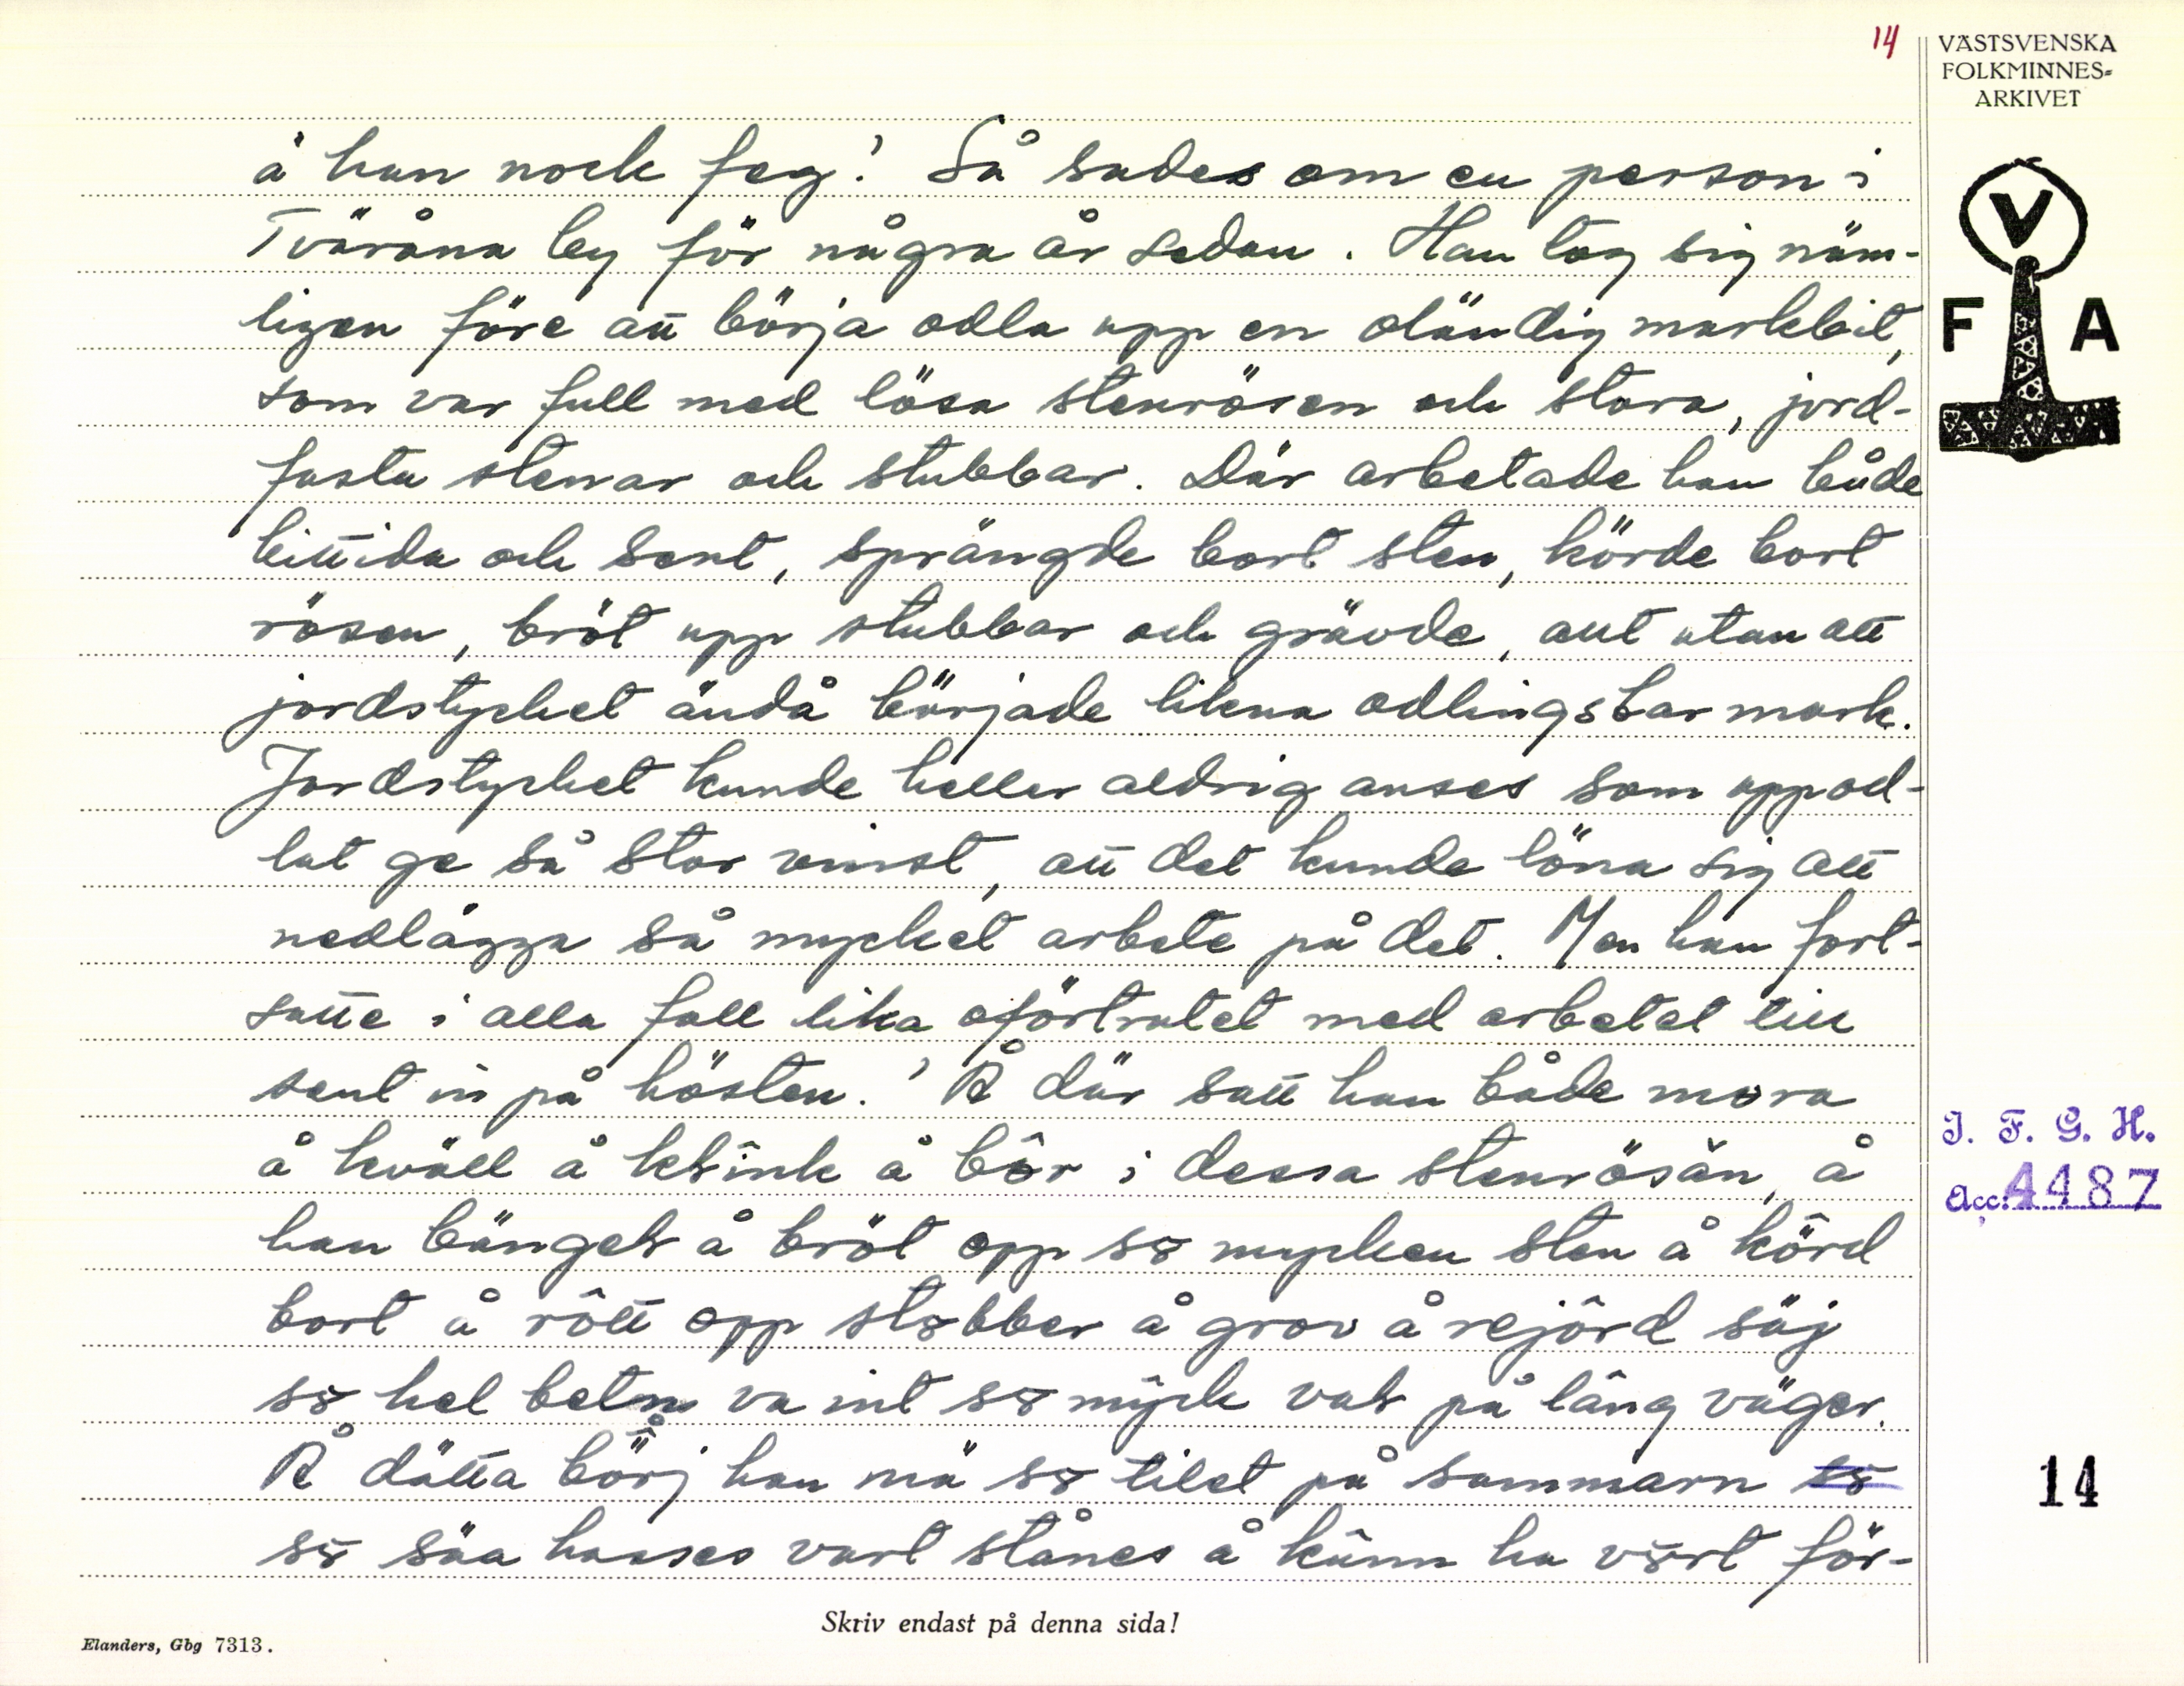 14
VÄSTSVENSKA
FOLKMINNES=
ARKIVET
V
F A
ä han nock feg! Så sades om en person i
Tväråna by för några år sedan. Han tog sig näm-
ligen före att börja odla upp en oländig markbit,
som var full med lösa stenrösen och stora, jord-
fasta stenar och stubbar. Där arbetade han både
bittida och sent, sprängde bort sten, körde bort
rösen, bröt upp stubbar och grävde, allt utan att
jordstycket ändå började likna odlingsbar mark.
Jordstycket kunde heller aldrig anses som uppod-
lat ge så stor vinst, att det kunde löna sig att
nedlägga så mycket arbete på det. Men han fort-
satte i alla fall lika oförtrutet med arbetet till
sent in på hösten. ' Å där satt han både mora
å kväll å å bôr i dessa stenrösän, å
han å bröt opp s8 mycken sten å kôrd
bort å rôtt opp st8bber å grov å rejôrd säj
s8 hel va int s8 mŷck på lâng väger.
Å dätta börj han mä s8 tilet på sommarn s8
s8 säa hasses vart stånes å kûnn ha v8rt för-
J. F. G. H.
Acc. 4487
14
Skriv endast på denna sida!
Elanders, Gbg 7313.